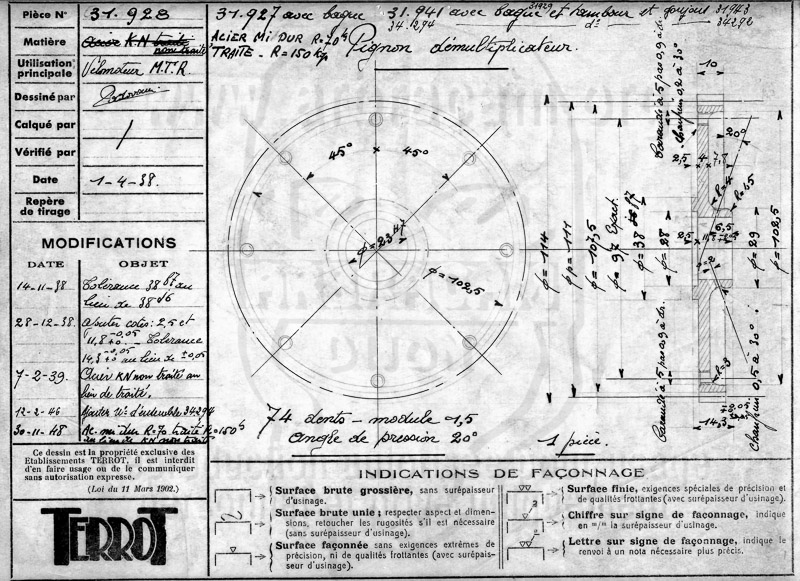 Pièce N° 31.928
31.927 avec bague 31.941 avec bague et tambour et goujons 31943
31929
34.1294 d° 34292
Matière Acier K.N traité
non traité
ACIER Mi DUR R=70 k
TRAITE - R=150 kg
Pignon démultiplicateur.
Utilisation
principale Vélomoteur M.T.R
Dessiné par
Calqué par /
Vérifié par
Date 1-4-38.
Repère
de tirage
MODIFICATIONS
DATE OBJET
14-11-38 Tolérance 38 f7 au
lieu de 38 d6
28-12-38 Ajouter cotes: 2,5 et
11,8 +0 -0,05 - Tolérance
14,3 +0 -0,05 au lieu de ±0,05
7-2-39. Acier KN non traité au
lieu de traité.
12-2-46 Ajouter N° d'ensemble 34294
30-11-48 Ac. mi dur R=70 traité R=150 k
au lieu de KN non traité
Ce dessin est la propriété exclusive des
Etablissements TERROT, il est interdit
d'en faire usage ou de le communiquer
sans autorisation expresse.
(Loi du 11 Mars 1902.)
TERROT
45° 45°
φ=23 H7
φ=102,5
74 dents - module 1,5
angle de pression 20°
1 pièce.
φ=114
φp=111
φ=107,5
φ=97 Exact.
φ=38 f7
φ=28
φ=29
φ=102,5
10
20°
2,5 4 7,8
R=4
R=65
2,5
6,5
φ=2
R=3
14,3
Chanfrein 0,2 à 30°
Chanfrein 0,5 à 30°.
INDICATIONS DE FAÇONNAGE
Surface brute grossière, sans surépaisseur
d'usinage.
Surface brute unie; respecter aspect et dimen-
sions, retoucher les rugosités s'il est nécessaire
(sans surépaisseur d'usinage).
Surface façonnée sans exigences extrêmes de
précision, ni de qualités frottantes (avec surépais-
seur d'usinage).
Surface finie, exigences spéciales de précision et
de qualités frottantes (avec surépaisseur d'usinage).
Chiffre sur signe de façonnage, indique
en =/= la surépaisseur d'usinage.
Lettre sur signe de façonnage, indique le
renvoi à un nota nécessaire plus précis.